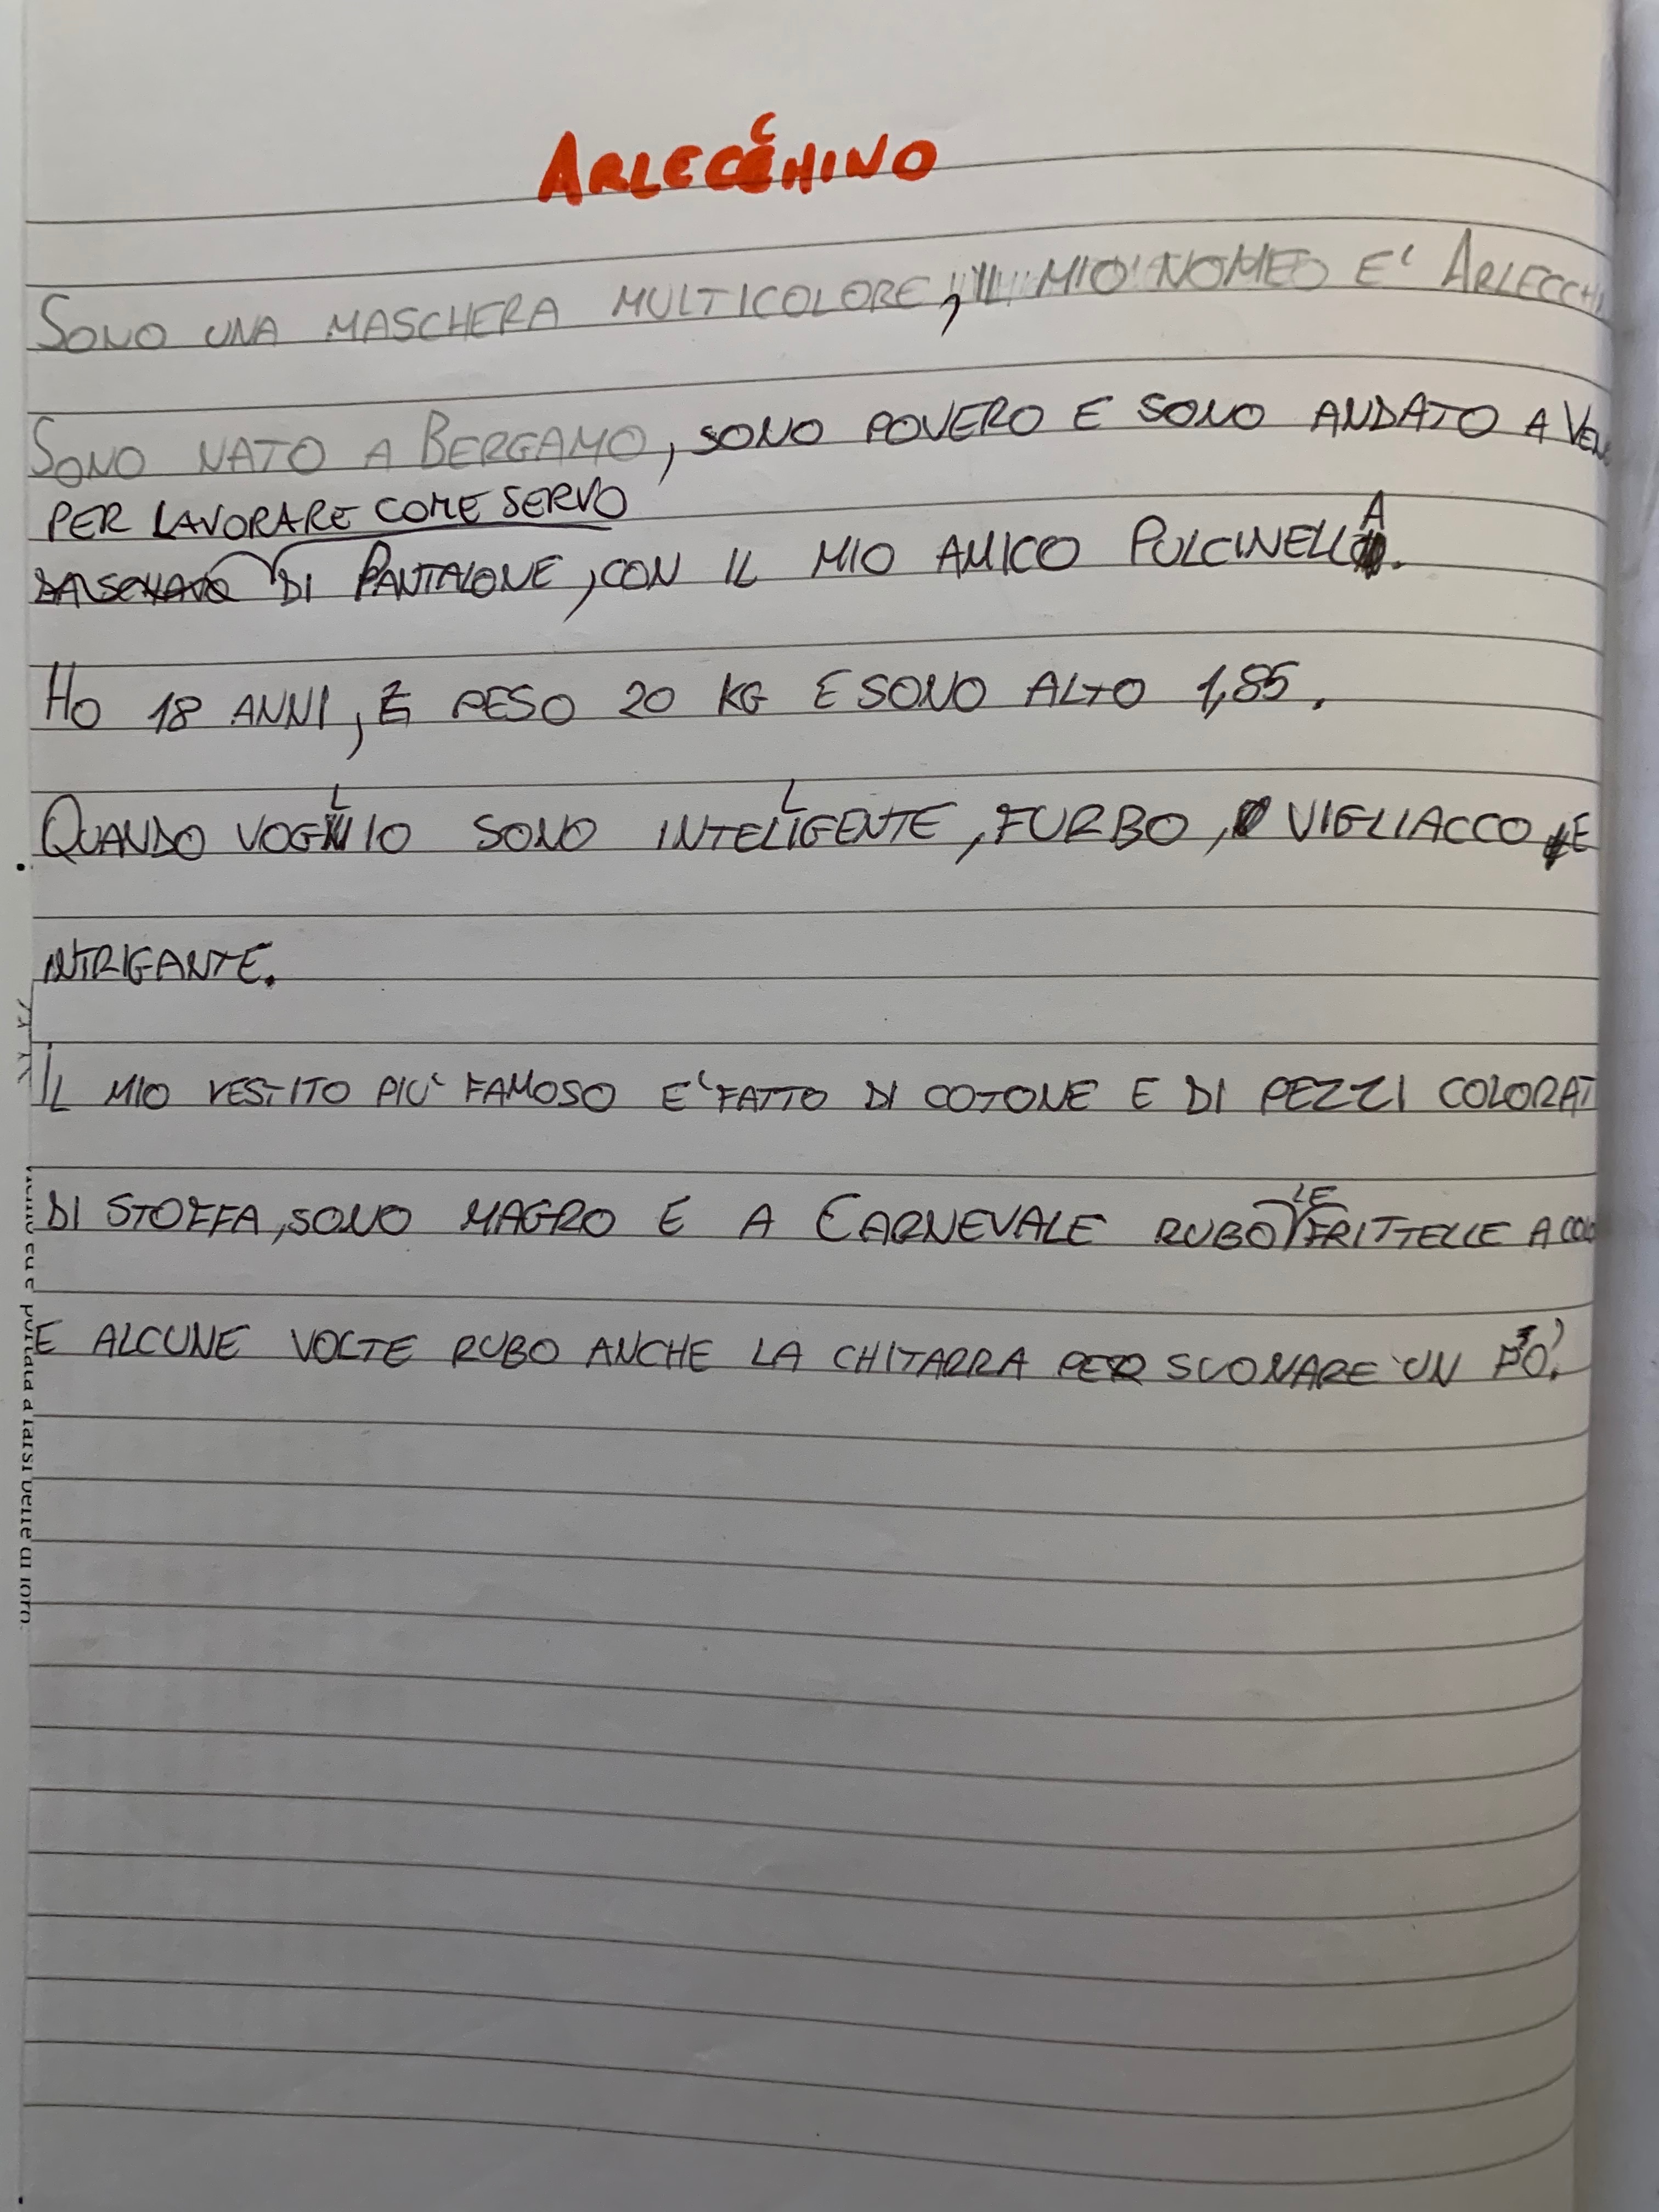 ARLECCHINO
SONO UNA MASCHERA MULTICOLORE, IL MIO NOMEO E' ARLECCHI
SONO NATO A BERGAMO, SONO POVERO E SONO ANDATO A VEN
PER LAVORARE COME SERVO
DI PANTALONE, CON IL MIO AMICO PULCINELLA.
HO 18 ANNI, E PESO 20 KG E SONO ALTO 1,85.
QUANDO VOGLIO SONO INTELLIGENTE, FURBO, VIGLIACCO E
INTRIGANTE.
IL MIO VESTITO PIU' FAMOSO E' FATTO DI COTONE E DI PEZZI COLORAT
DI STOFFA, SONO MAGRO E A CARNEVALE RUBO LE FRITTELLE A
E ALCUNE VOLTE RUBO ANCHE LA CHITARRA PER SUONARE UN PO'.
portata a farsi beffe di loro.